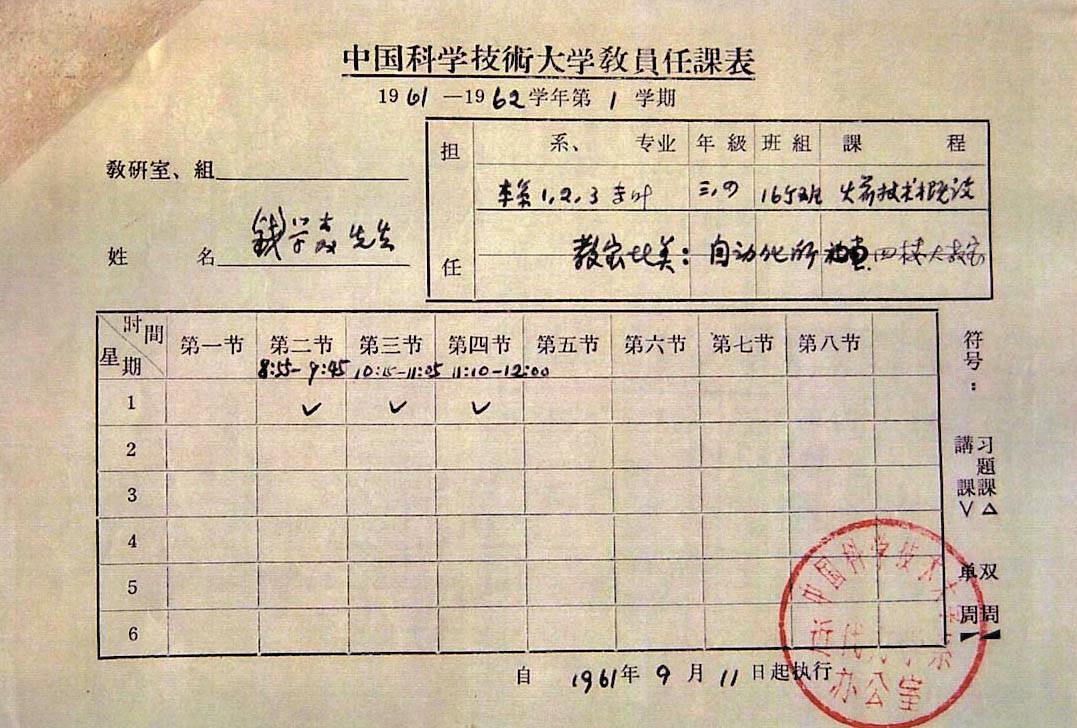 中国科学技術大学教員任課表
1961—1962学年第1学期
教研室、組
姓 名 钱学森先生
担任
系、 专业 年級 班組 課 程
本系1,2,3专业 三,四 165班 火箭技术概論
教室 自动化所 四楼大教室
时間 星期 第一节 第二节 第三节 第四节 第五节 第六节 第七节 第八节
8:55-9:45 10:15-11:05 11:10-12:00
1 ✓ ✓ ✓
2
3
4
5
6
符号:
講課∨
习題課△
单周
双周
自 1961年 9月 11日起执行
中国科学技术大学
近代力学系
办公室